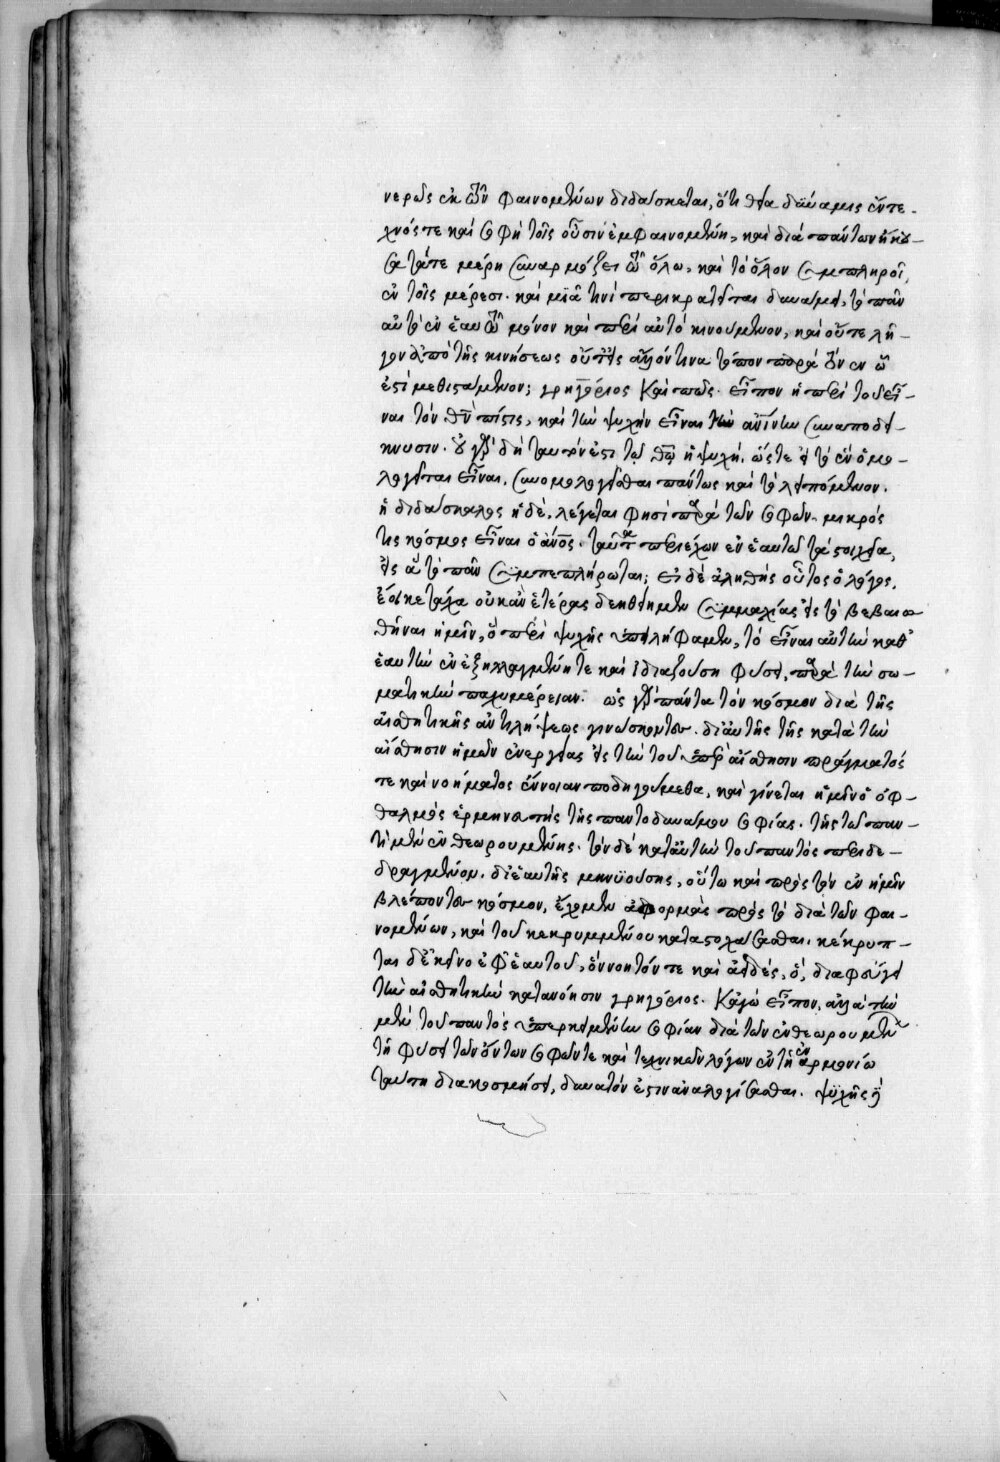 νερῶς ἐκ τῶν φαινομένων διδάσκεται, ὅτι θεία δύναμις ἔντε-
χνός τε καὶ σοφὴ τοῖς οὖσιν ἐμφαινομένη, καὶ διὰ πάντων ἥκου-
σα τά τε μέρη συναρμόζει τῷ ὅλῳ, καὶ τὸ ὅλον συμπληροῖ,
ἐν τοῖς μέρεσι. καὶ μιᾷ τινὶ περικρατεῖται δυνάμει, τὸ πᾶν
αὐτὸ ἐν ἑαυτῷ μένον καὶ περὶ αὐτὸ κινούμενον, καὶ οὔτε λῆ-
γον ἀπὸ τῆς κινήσεως οὔτ' εἰς ἄλλόν τινα τόπον παρὰ ὃν ἐν ᾧ
ἐστὶ μεθιστάμενον; γρηγόριος Καὶ πῶς. εἶπον ἡ περὶ τοῦ εἶ-
ναι τὸν θν πίστις, καὶ τὴν ψυχὴν εἶναι τὴν ανίνην συναποδει-
κνυσιν. οὐ γὰρ δὴ ταυτόν ἐστι τῷ θω ἡ ψυχή. ὥστε εἰ τὸ ἓν ὁμο-
λογεῖται εἶναι, συνομολογεῖσθαι πάντως καὶ τὸ λειπόμενον.
ἡ διδάσκαλος ἡ δέ. λέγεται φησὶ παρὰ τῶν σοφῶν. μικρός
τις κόσμος εἶναι ὁ ανος. ταῦτα περιέχων ἐν ἑαυτῷ τὰ στοιχεῖα,
εἰς ἃ τὸ πᾶν συμπεπλήρωται; εἰ δὲ ἀληθὴς οὗτος ὁ λόγος,
ἔοικε τάχα οὐκ ἂν ἑτέρας δεηθείημεν συμμαχίας εἰς τὸ βεβαιω
θῆναι ἡμῖν, ὃ περὶ ψυχῆς ὑπειλήφαμεν, τὸ εἶναι αὐτὴν καθ'
ἑαυτὴν ἐν ἐξηλλαγμένῃ τε καὶ ἰδιαζούσῃ φύσει, παρὰ τὴν σω-
ματικὴν παχυμέρειαν. ὡς γὰρ πάντα τὸν κόσμον διὰ τῆς
αἰσθητικῆς ἀντιλήψεως γινώσκοντες. δι' αὐτῆς τῆς κατὰ τὴν
αἴσθησιν ἡμῶν ἐνεργείας εἰς τὴν τοῦ ὑπὲρ αἴσθησιν πράγματός
τε καὶ νοήματος ἔννοιαν ποδηγούμεθα, καὶ γίνεται ἡμῖν ὁ ὀφ-
θαλμὸς ἑρμηνευτὴς τῆς παντοδυνάμου σοφίας. τῆς τῷ παν-
τὶ μὲν ἐνθεωρουμένης. τὸν δὲ κατ' αὐτὴν τοῦ παντὸς περιδε-
δραγμένον. δι' ἑαυτῆς μηνυούσης, οὕτω καὶ πρὸς τὸν ἐν ἡμῖν
βλέποντες κόσμον, ἔχομεν ἀφορμὰς πρὸς τὸ διὰ τῶν φαι-
νομένων, καὶ τοῦ κεκρυμμένου καταστοχάσασθαι. κέκρυπ-
ται δὲ ἐκεῖνο ἐφ' ἑαυτοῦ, ὃ νοητόν τε καὶ ἀειδές, ὃ, διαφεύγει
τὴν αἰσθητικὴν κατανόησιν γρηγόριος. Κἀγὼ εἶπον, ἀλλὰ τὴν
μὲν τοῦ παντὸς ὑπερκειμένην σοφίαν διὰ τῶν ἐνθεωρουμένων
τῇ φύσει τῶν ὄντων σοφῶν τε καὶ τεχνικῶν λόγων ἐν τῇ ἐναρμονίῳ
ταύτῃ διακοσμήσει, δυνατόν ἐστιν ἀναλογίσασθαι. ψυχῆς δὲ